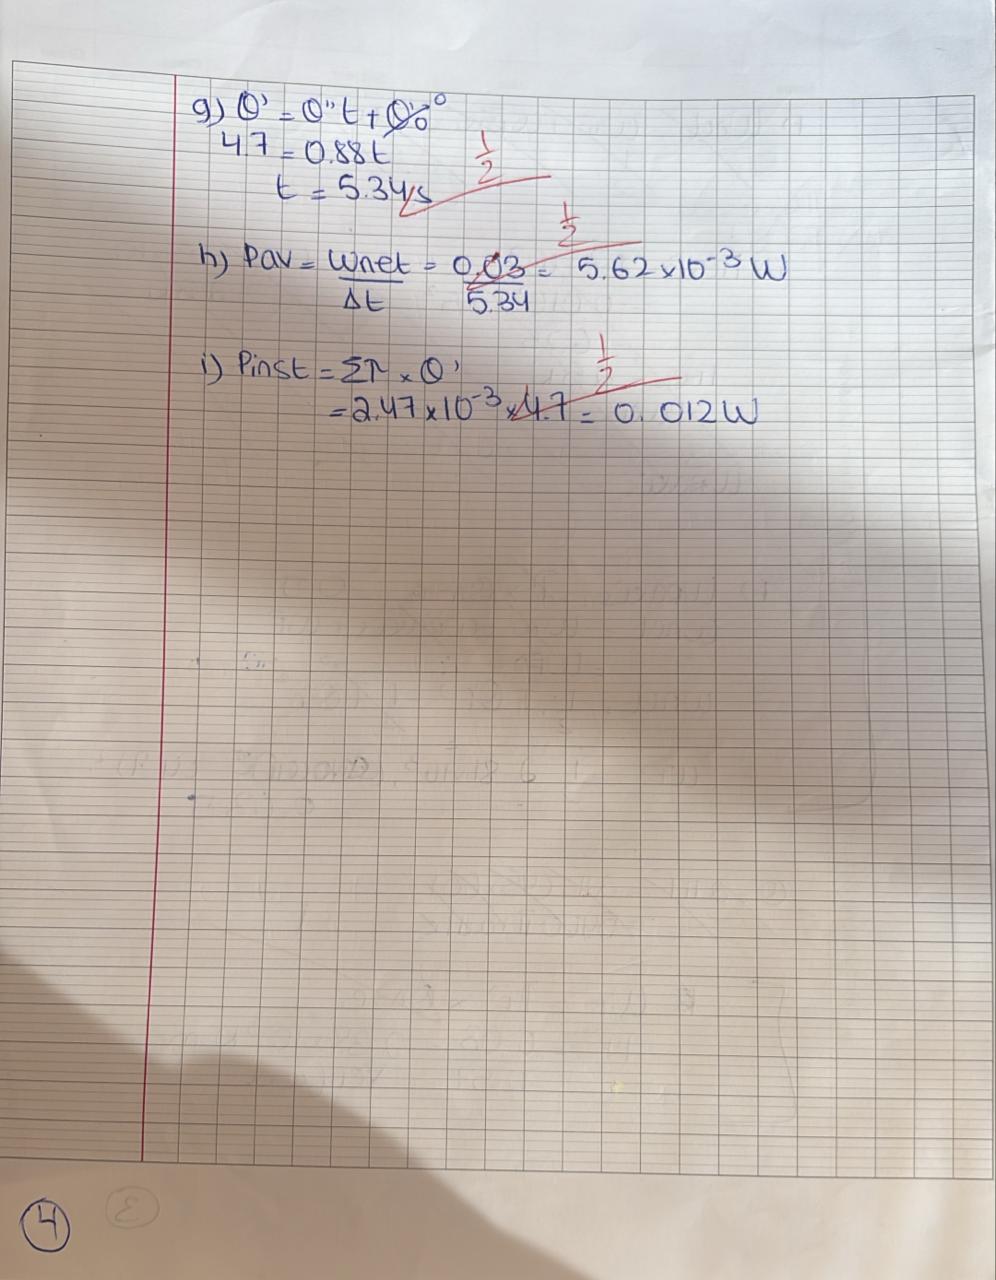 g) θ' = θ'' t + θ'₀ ⁰
4.7 = 0.88t
t = 5.34s
1/2
h) Pav = Wnet/Δt = 0.03/5.34 = 5.62 x 10⁻³ W
1/2
i) Pinst = Σ𝜏 x θ'
= 2.47 x 10⁻³ x 4.7 = 0.012W
1/2
4